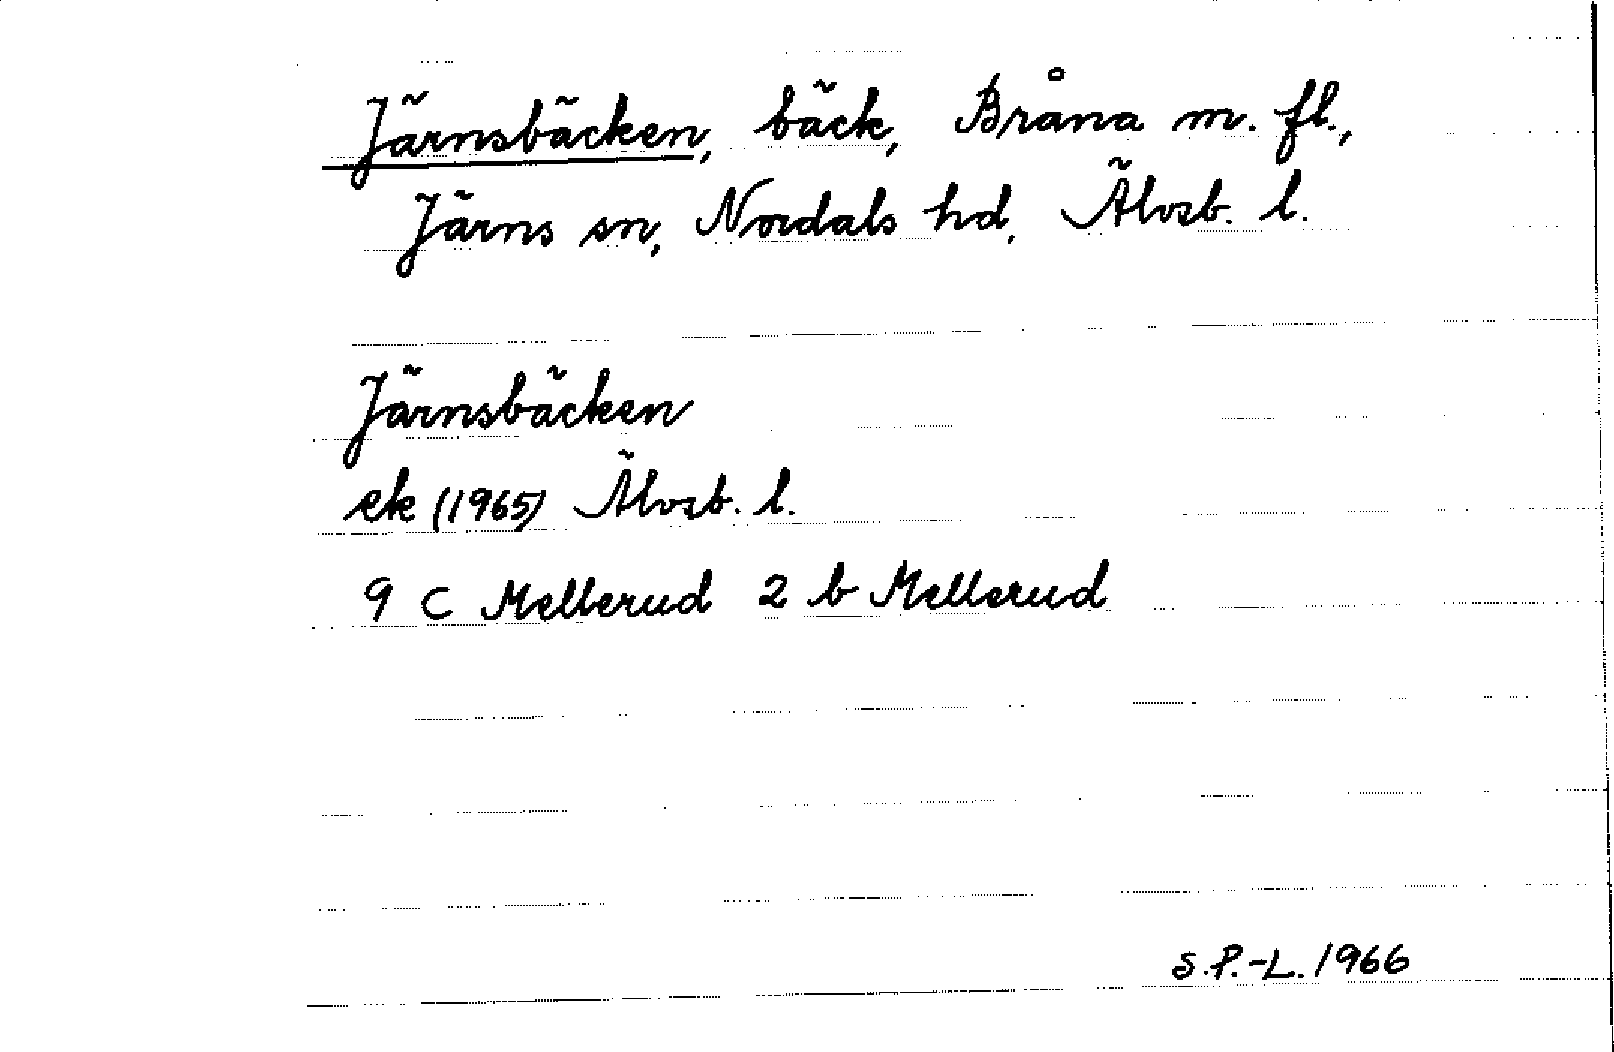 Järnsbäcken, bäck, Bråna m. fl.,
Järns sn, Nordals hd, Älvsb. l.
Järnsbäcken
ek (1965) Älvsb. l.
9 C Mellerud 2 b Mellerud
S.P.-L. 1966